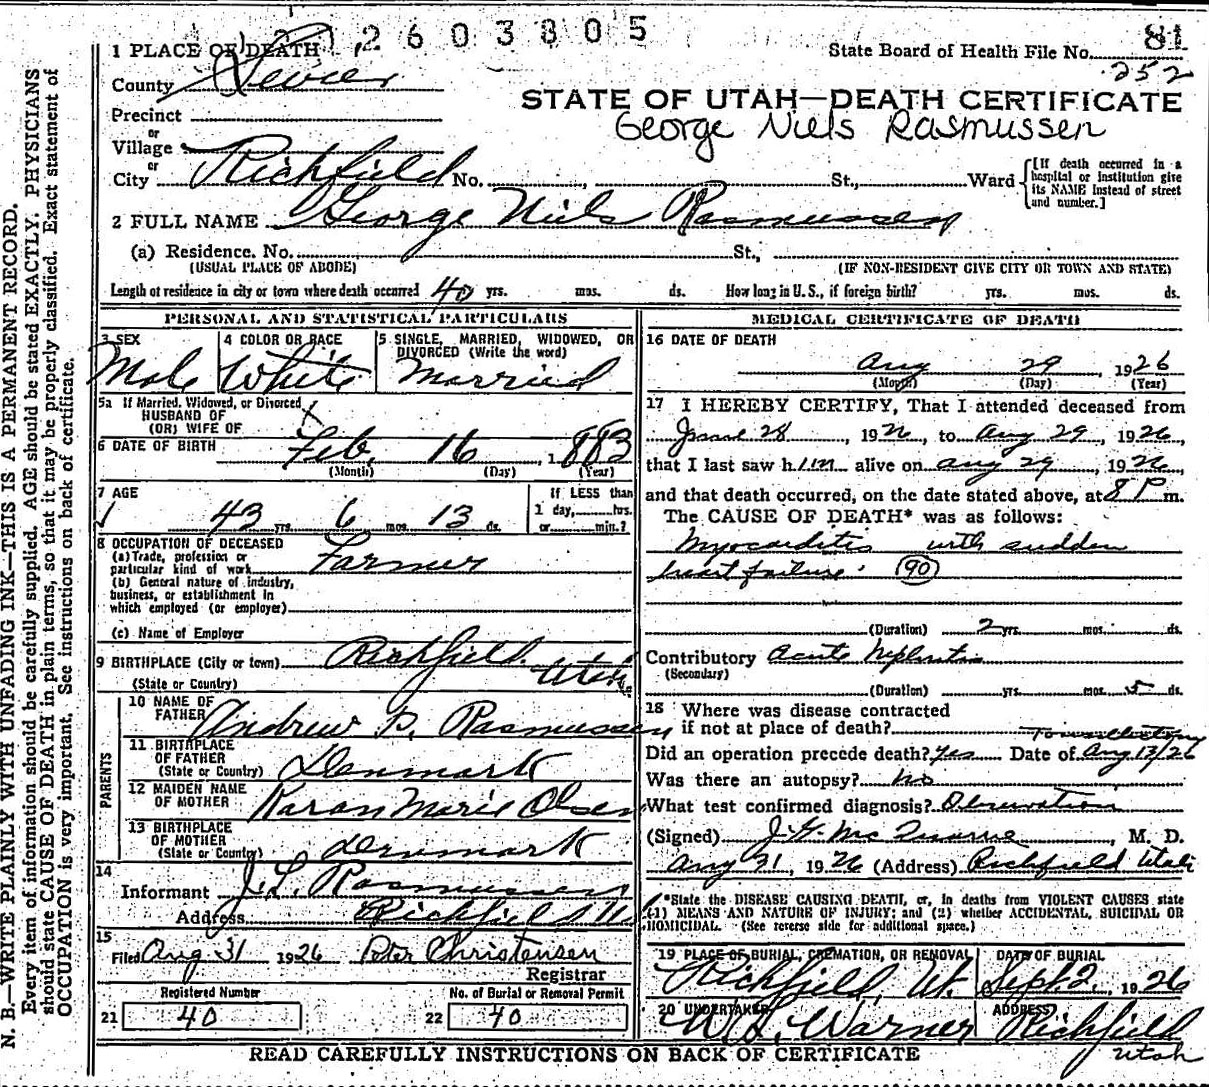 2603805
81
1 PLACE OF DEATH
State Board of Health File No.
252
County Sevier
STATE OF UTAH—DEATH CERTIFICATE
Precinct
George Niels Rasmussen
or
Village
or
City Richfield No. , St., Ward
[If death occurred in a hospital or institution give its NAME instead of street and number.]
2 FULL NAME George Niels Rasmussen
(a) Residence. No. St.,
(USUAL PLACE OF ABODE) (IF NON-RESIDENT GIVE CITY OR TOWN AND STATE)
Length of residence in city or town where death occurred 40 yrs. mos. ds. How long in U. S., if foreign birth? yrs. mos. ds.
PERSONAL AND STATISTICAL PARTICULARS
3 SEX
Male
4 COLOR OR RACE
White
5 SINGLE, MARRIED, WIDOWED, OR
DIVORCED (Write the word)
Married
5a If Married, Widowed, or Divorced
HUSBAND OF
(OR) WIFE OF
6 DATE OF BIRTH Feb. 16, 1883
(Month) (Day) (Year)
7 AGE
43 yrs. 6 mos. 13 ds.
If LESS than
1 day, hrs.
or min.?
8 OCCUPATION OF DECEASED
(a) Trade, profession or
particular kind of work Farmer
(b) General nature of industry,
business, or establishment in
which employed (or employer)
(c) Name of Employer
9 BIRTHPLACE (City or town) Richfield
(State or Country) Utah
PARENTS
10 NAME OF
FATHER Andrew P. Rasmussen
11 BIRTHPLACE
OF FATHER
(State or Country) Denmark
12 MAIDEN NAME
OF MOTHER Karan Marie Olsen
13 BIRTHPLACE
OF MOTHER
(State or Country) Denmark
14
Informant J. L. Rasmussen
Address Richfield Ut.
15
Filed Aug 31 1926 Peter Christensen
Registrar
Registered Number
21 40
No. of Burial or Removal Permit
22 40
MEDICAL CERTIFICATE OF DEATH
16 DATE OF DEATH
Aug 29, 1926
(Month) (Day) (Year)
17 I HEREBY CERTIFY, That I attended deceased from
June 28, 1926, to Aug 29, 1926,
that I last saw him alive on Aug 29, 1926,
and that death occurred, on the date stated above, at 8 P m.
The CAUSE OF DEATH* was as follows:
Myocarditis with sudden
heart failure. 90
(Duration) 2 yrs. mos. ds.
Contributory Acute Nephritis
(Secondary)
(Duration) yrs. mos. 5 ds.
18 Where was disease contracted
if not at place of death?
Tonsillectomy
Did an operation precede death? Yes Date of Aug 13/26
Was there an autopsy? no
What test confirmed diagnosis? Observation
(Signed) J. G. McQuarrie, M. D.
Aug 31, 1926 (Address) Richfield Utah
*State the DISEASE CAUSING DEATH, or, in deaths from VIOLENT CAUSES state
(1) MEANS AND NATURE OF INJURY; and (2) whether ACCIDENTAL, SUICIDAL OR
HOMICIDAL. (See reverse side for additional space.)
19 PLACE OF BURIAL, CREMATION, OR REMOVAL
Richfield, Ut.
DATE OF BURIAL
Sept 2, 1926
20 UNDERTAKER
W. L. Warner
ADDRESS
Richfield
Utah
READ CAREFULLY INSTRUCTIONS ON BACK OF CERTIFICATE
N. B.—WRITE PLAINLY WITH UNFADING INK—THIS IS A PERMANENT RECORD.
Every item of information should be carefully supplied. AGE should be stated EXACTLY. PHYSICIANS
should state CAUSE OF DEATH in plain terms, so that it may be properly classified. Exact statement of
OCCUPATION is very important. See instructions on back of certificate.